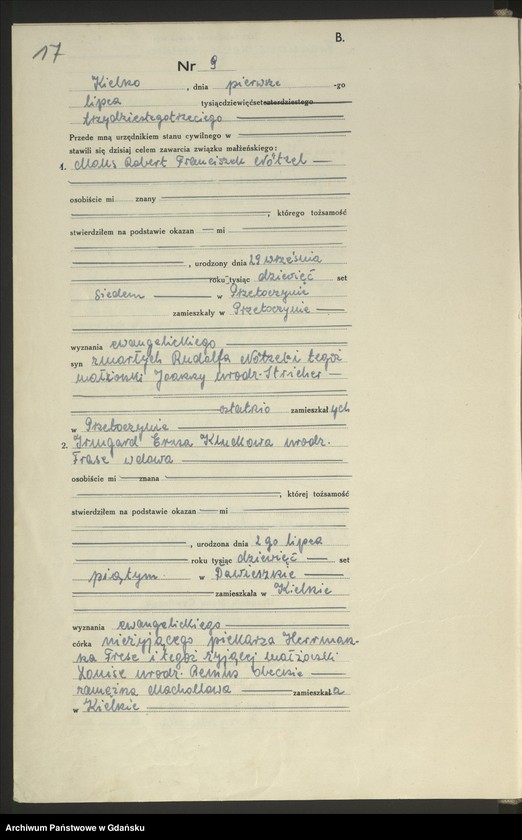 17
B.
Nr 9
Kielno, dnia pierwsze -go
lipca tysiącdziewięćsetczterdziestego
trzydziestegotrzeciego
Przede mną urzędnikiem stanu cywilnego w
stawili się dzisiaj celem zawarcia związku małżeńskiego:
1. Robert Franciszek Nötzel
osobiście mi znany
, którego tożsamość
stwierdziłem na podstawie okazan mi
, urodzony dnia 29 września
roku tysiąc dziewięć set
siedem w Przetoczynie
zamieszkały w Przetoczynie
wyznania ewangelickiego
syn zmarłych Rudolfa Nötzel i tegoż
małżonki urodz. Stricher
ostatnio zamieszkałych
w Przetoczynie
2. Irmgard Erna urodz.
Frese wdowa
osobiście mi znana
, której tożsamość
stwierdziłem na podstawie okazan mi
, urodzona dnia 2 go lipca
roku tysiąc dziewięć set
piątym w
zamieszkała w Kielnie
wyznania ewangelickiego
córka nieżyjącego piekarza Herrman-
na Frese i tegoż żyjącej małżonki
Louise urodz. obecnie
zamężna zamieszkała
w Kielnie
Archiwum Państwowe w Gdańsku